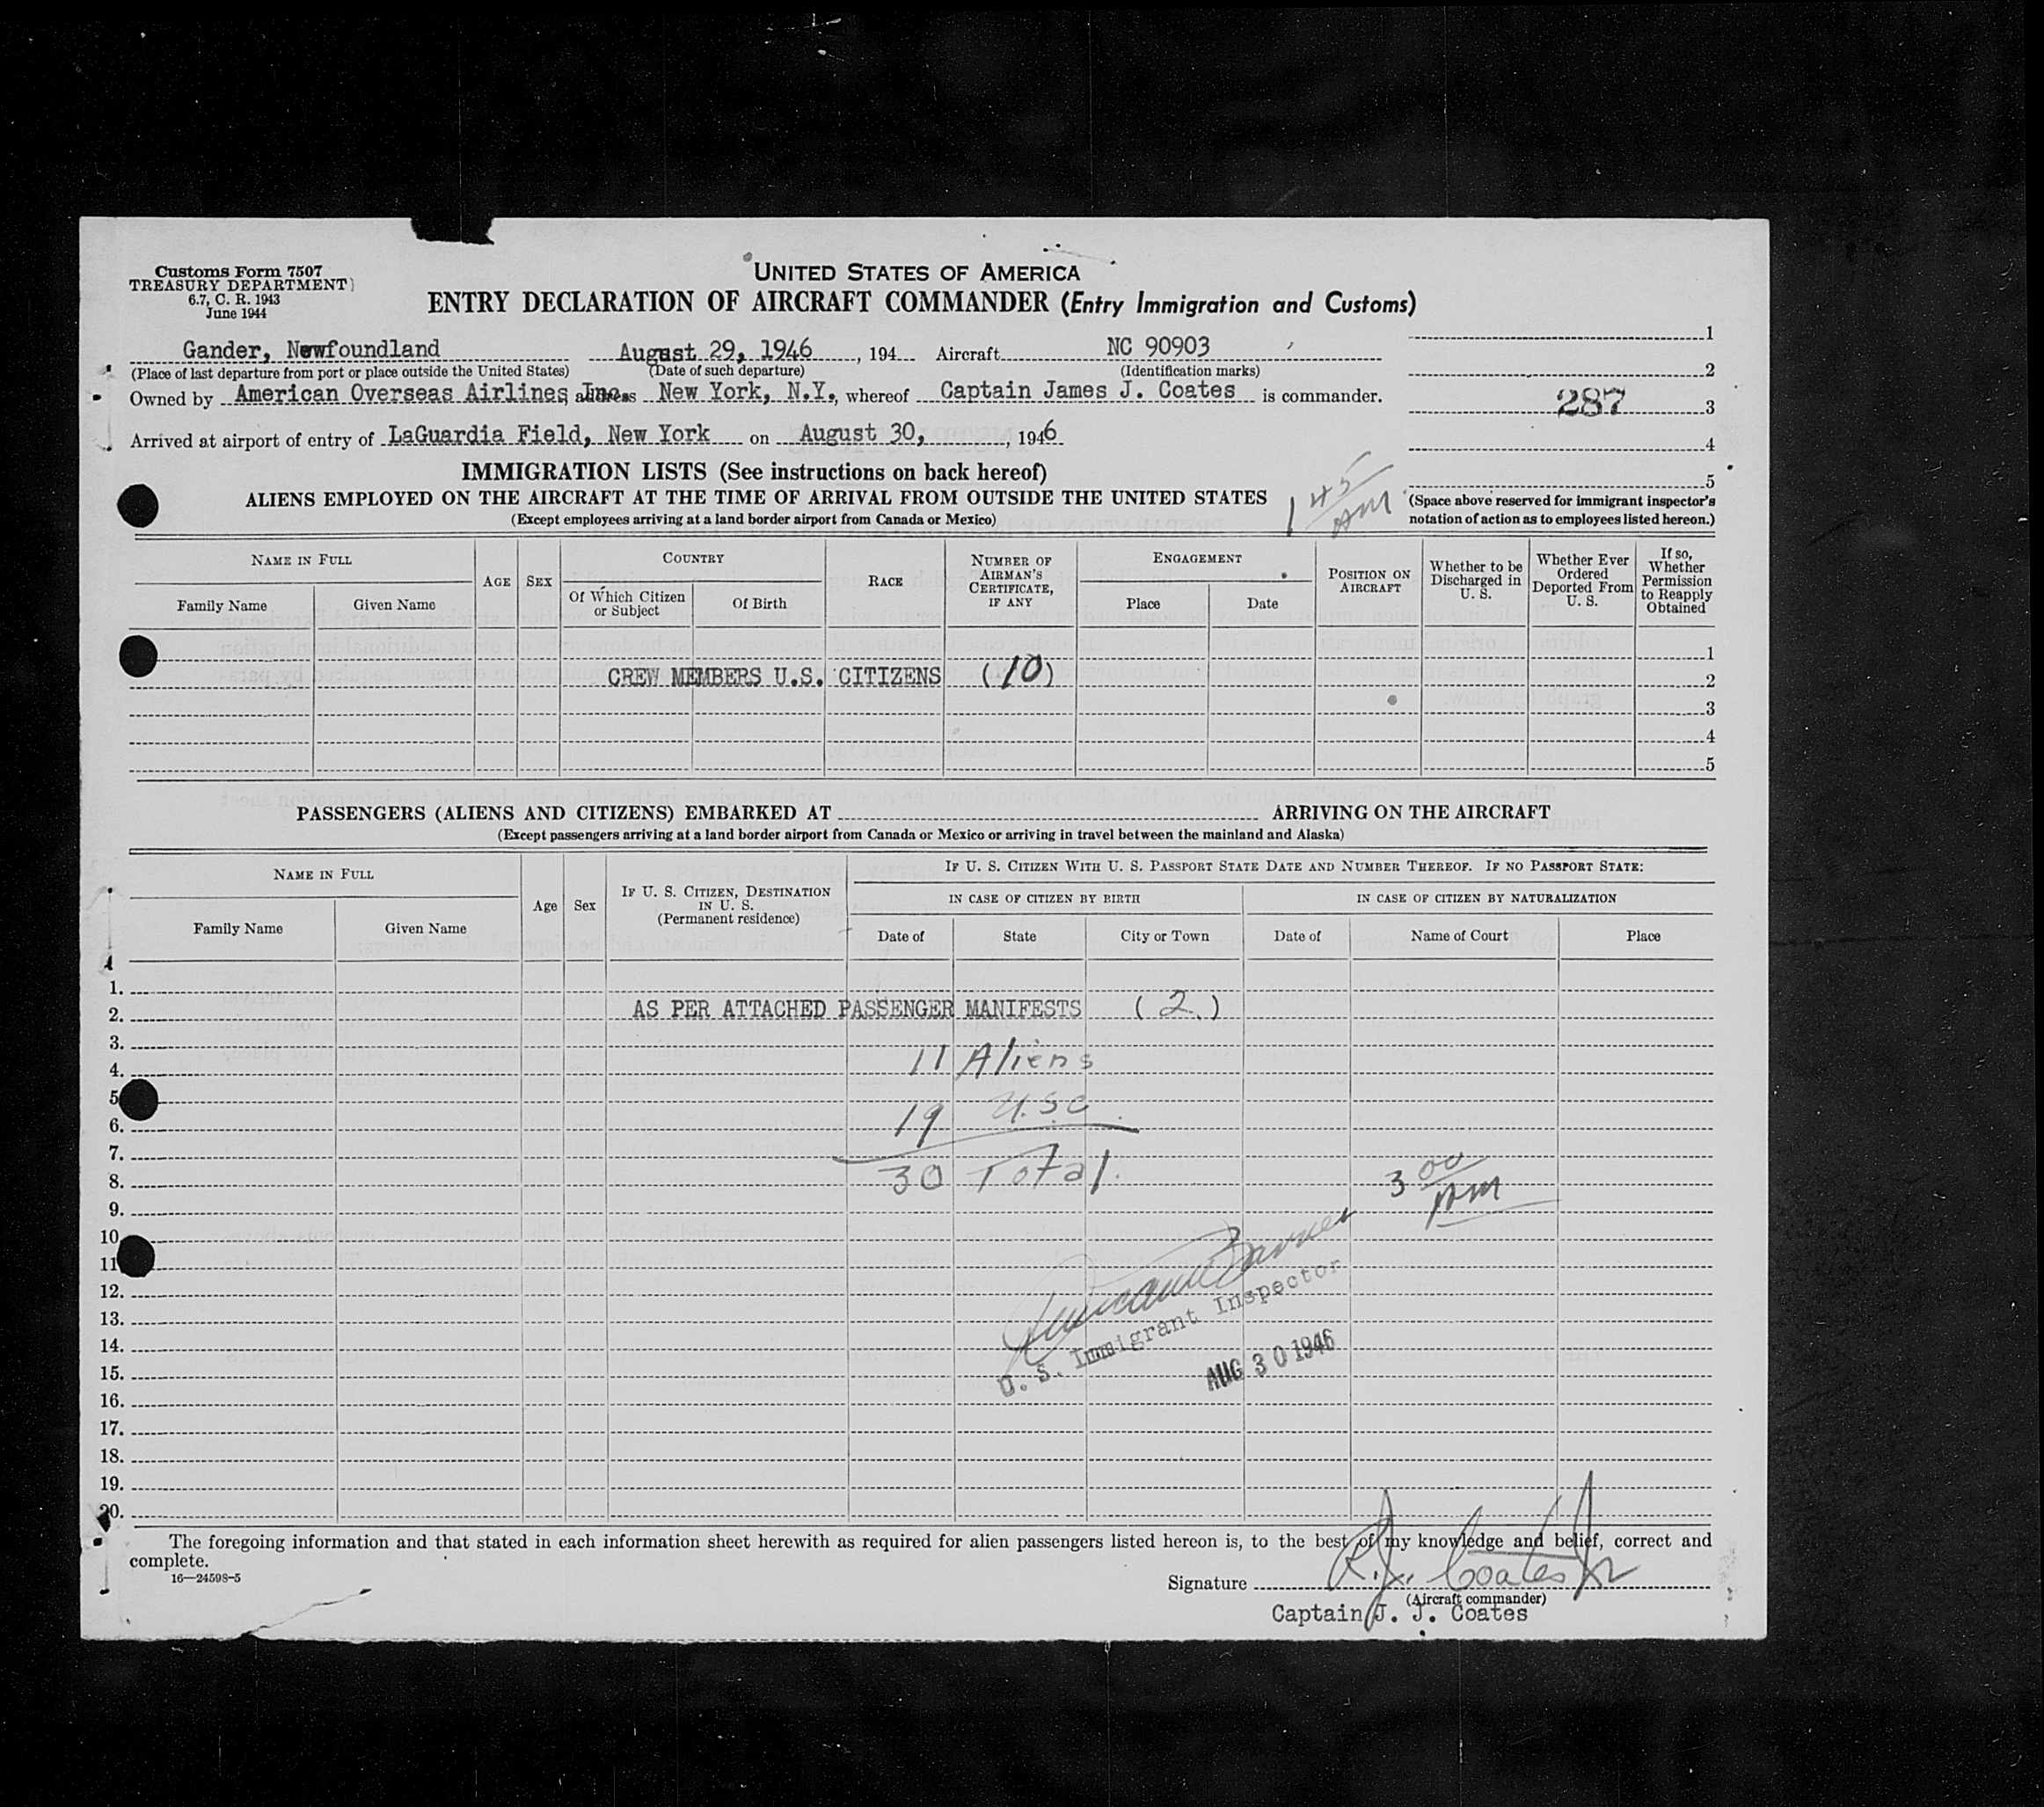 Customs Form 7507
TREASURY DEPARTMENT
6.7, C. R. 1943
June 1944
UNITED STATES OF AMERICA
ENTRY DECLARATION OF AIRCRAFT COMMANDER (Entry Immigration and Customs)
Gander, Newfoundland August 29, 1946, 194 Aircraft NC 90903
(Place of last departure from port or place outside the United States) (Date of such departure) (Identification marks)
Owned by American Overseas Airlines, Inc. address New York, N.Y., whereof Captain James J. Coates is commander.
Arrived at airport of entry of LaGuardia Field, New York on August 30, , 1946
1
2
287 3
4
5
(Space above reserved for immigrant inspector's
notation of action as to employees listed hereon.)
IMMIGRATION LISTS (See instructions on back hereof)
ALIENS EMPLOYED ON THE AIRCRAFT AT THE TIME OF ARRIVAL FROM OUTSIDE THE UNITED STATES
(Except employees arriving at a land border airport from Canada or Mexico)
1 45 AM
NAME IN FULL
Family Name Given Name
AGE SEX
COUNTRY
Of Which Citizen or Subject Of Birth
RACE
NUMBER OF AIRMAN'S CERTIFICATE, IF ANY
ENGAGEMENT
Place Date
POSITION ON AIRCRAFT
Whether to be Discharged in U. S.
Whether Ever Ordered Deported From U. S.
If so, Whether Permission to Reapply Obtained
1
CREW MEMBERS U.S. CITIZENS (10) 2
3
4
5
PASSENGERS (ALIENS AND CITIZENS) EMBARKED AT ARRIVING ON THE AIRCRAFT
(Except passengers arriving at a land border airport from Canada or Mexico or arriving in travel between the mainland and Alaska)
NAME IN FULL
Family Name Given Name
Age Sex
IF U. S. CITIZEN, DESTINATION IN U. S. (Permanent residence)
IF U. S. CITIZEN WITH U. S. PASSPORT STATE DATE AND NUMBER THEREOF. IF NO PASSPORT STATE:
IN CASE OF CITIZEN BY BIRTH IN CASE OF CITIZEN BY NATURALIZATION
Date of State City or Town Date of Name of Court Place
1.
2. AS PER ATTACHED PASSENGER MANIFESTS (2.)
3.
4. 11 Aliens
5
6. 19 U.S.C.
7.
8. 30 Total. 3 00 AM
9.
10
11
12.
13.
U. S. Immigrant Inspector
14.
15. AUG 30 1946
16.
17.
18.
19.
20.
The foregoing information and that stated in each information sheet herewith as required for alien passengers listed hereon is, to the best of my knowledge and belief, correct and
complete.
16—24598-5
Signature R.J. Coates Jr
(Aircraft commander)
Captain J. J. Coates